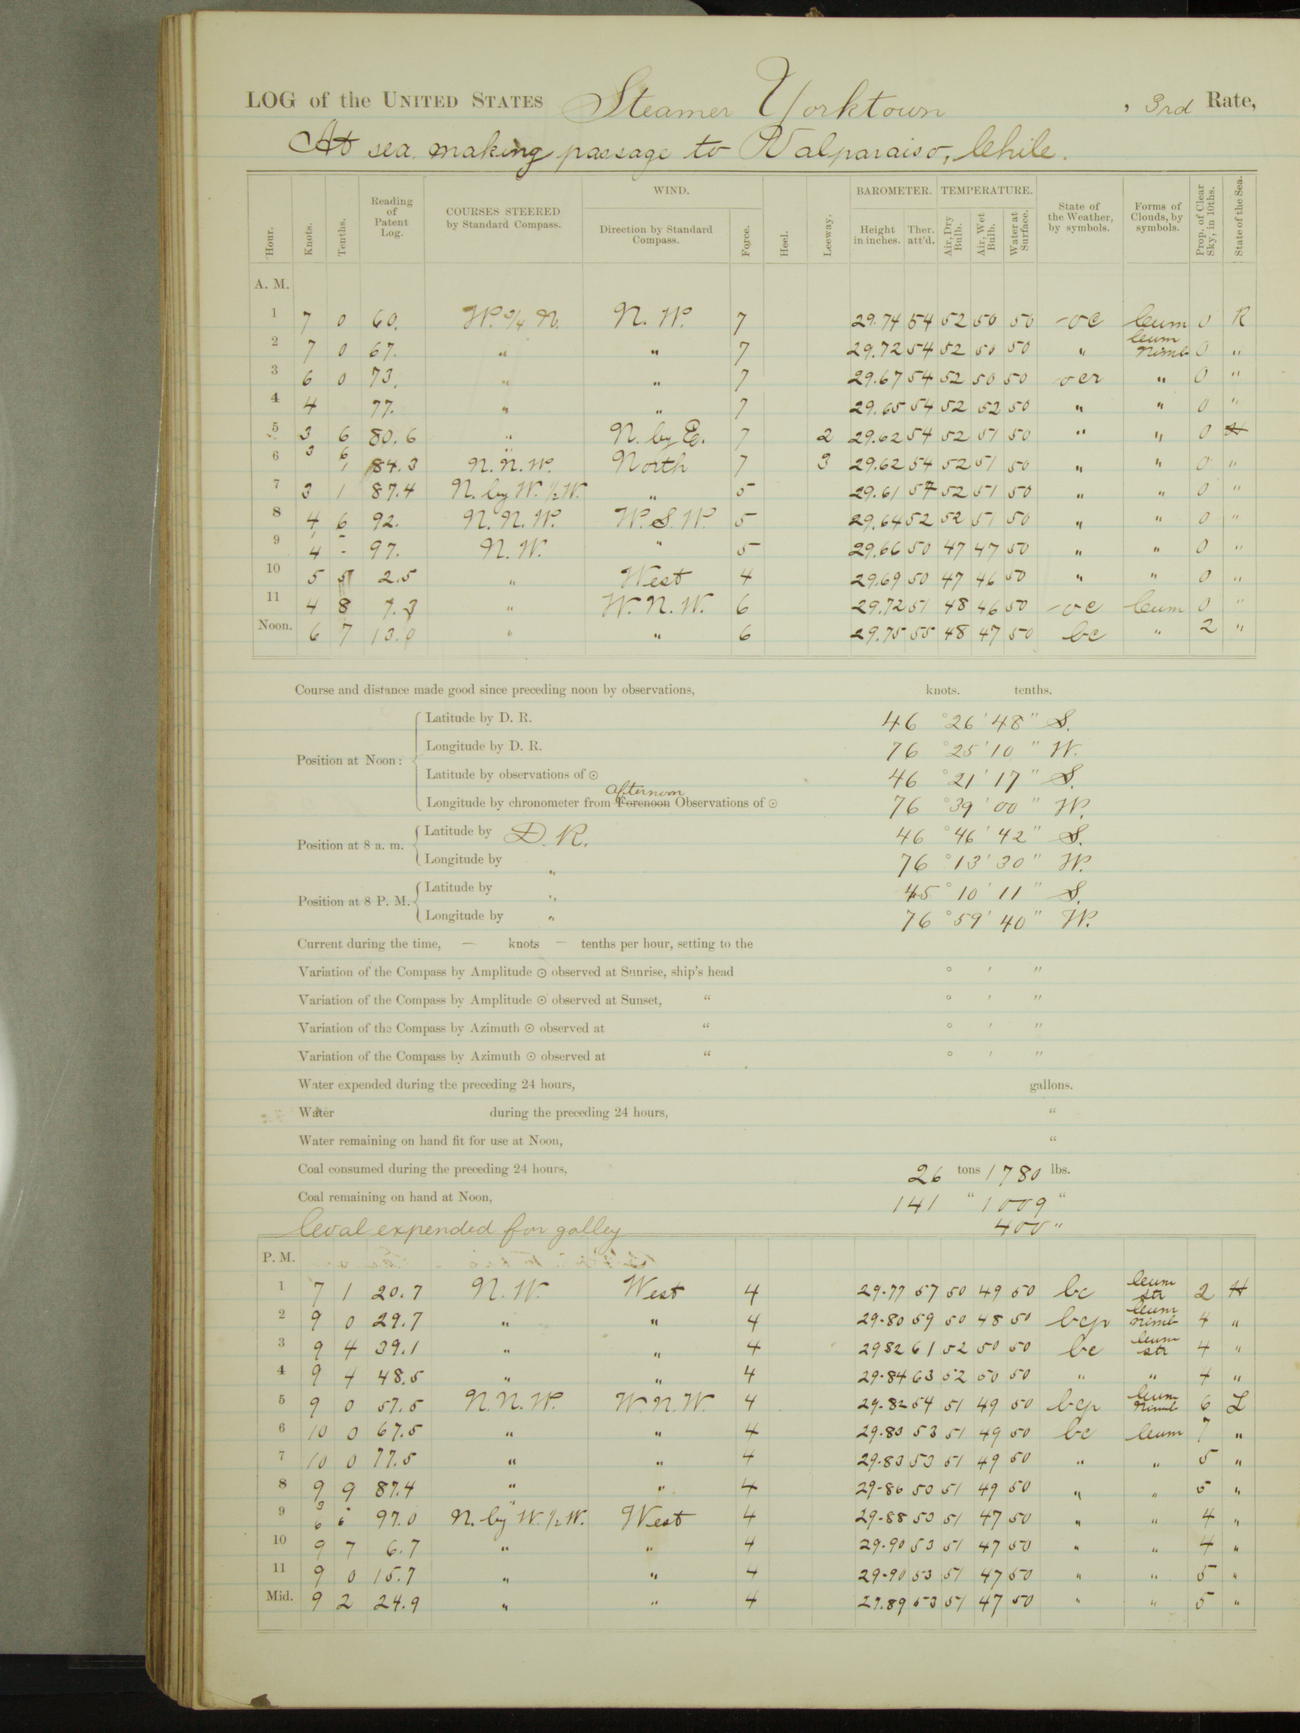 LOG of the UNITED STATES Steamer Yorktown , 3rd Rate,
At sea making passage to Valparaiso, Chile.
Hour. Knots. Tenths. Reading of Patent Log. COURSES STEERED by Standard Compass. WIND. Direction by Standard Compass. Force. Heel. Leeway. BAROMETER. Height in inches. Ther. att'd. TEMPERATURE. Air, Dry Bulb. Air, Wet Bulb. Water at Surface. State of the Weather, by symbols. Forms of Clouds, by symbols. Prop. of Clear Sky, in 10ths. State of the Sea.
A. M.
1 7 0 60. W. 3/4 N. N. W. 7 29.74 54 52 50 50 oc Cum 0 R
2 7 0 67. " " 7 29.72 54 52 50 50 " Cum Nimb 0 "
3 6 0 73. " " 7 29.67 54 52 50 50 ocr " 0 "
4 4 77. " " 7 29.65 54 52 52 50 " " 0 "
5 3 6 80.6 " N. by E. 7 2 29.62 54 52 51 50 " " 0 H
6 3 6 84.3 N. N. W. North 7 3 29.62 54 52 51 50 " " 0 "
7 3 1 87.4 N. by W. 1/2 W. " 5 29.61 54 52 51 50 " " 0 "
8 4 6 92. N. N. W. W. S. W. 5 29.64 52 52 51 50 " " 0 "
9 4 - 97. N. W. " 5 29.66 50 47 47 50 " " 0 "
10 5 5 2.5 " West 4 29.69 50 47 46 50 " " 0 "
11 4 8 7.3 " W. N. W. 6 29.72 51 48 46 50 oc Cum 0 "
Noon. 6 7 13.0 " " 6 29.75 55 48 47 50 bc " 2 "
Course and distance made good since preceding noon by observations, knots. tenths.
Position at Noon: Latitude by D. R. 46 ° 26 ' 48 " S.
Longitude by D. R. 76 ° 25 ' 10 " W.
Latitude by observations of ☉ 46 ° 21 ' 17 " S.
afternoon
Longitude by chronometer from Forenoon Observations of ☉ 76 ° 39 ' 00 " W.
Position at 8 a. m. Latitude by D. R. 46 ° 46 ' 42 " S.
Longitude by " 76 ° 13 ' 30 " W.
Position at 8 P. M. Latitude by " 45 ° 10 ' 11 " S.
Longitude by " 76 ° 59 ' 40 " W.
Current during the time, — knots — tenths per hour, setting to the
Variation of the Compass by Amplitude ☉ observed at Sunrise, ship's head ° ' "
Variation of the Compass by Amplitude ☉ observed at Sunset, " ° ' "
Variation of the Compass by Azimuth ☉ observed at " ° ' "
Variation of the Compass by Azimuth ☉ observed at " ° ' "
Water expended during the preceding 24 hours, gallons.
Water during the preceding 24 hours, "
Water remaining on hand fit for use at Noon, "
Coal consumed during the preceding 24 hours, 26 tons 1780 lbs.
Coal remaining on hand at Noon, 141 " 1009 "
Coal expended for galley 400 "
P. M.
1 7 1 20.7 N. W. West 4 29.77 57 50 49 50 bc Cum Str 2 H
2 9 0 29.7 " " 4 29.80 59 50 48 50 bcp Cum Nimb 4 "
3 9 4 39.1 " " 4 29 82 61 52 50 50 bc Cum Str 4 "
4 9 4 48.5 " " 4 29.84 63 52 50 50 " " 4 "
5 9 0 57.5 N. N. W. W. N. W. 4 29.82 54 51 49 50 bcp Cum Nimb 6 L
6 10 0 67.5 " " 4 29.83 53 51 49 50 bc Cum 7 "
7 10 0 77.5 " " 4 29.83 53 51 49 50 " " 5 "
8 9 9 87.4 " " 4 29.86 50 51 49 50 " " 5 "
9 9 6 97.0 N. by W. 1/2 W. West 4 29.88 53 51 47 50 " " 4 "
10 9 7 6.7 " " 4 29.90 53 51 47 50 " " 4 "
11 9 0 15.7 " " 4 29.90 53 51 47 50 " " 5 "
Mid. 9 2 24.9 " " 4 29.89 53 51 47 50 " " 5 "